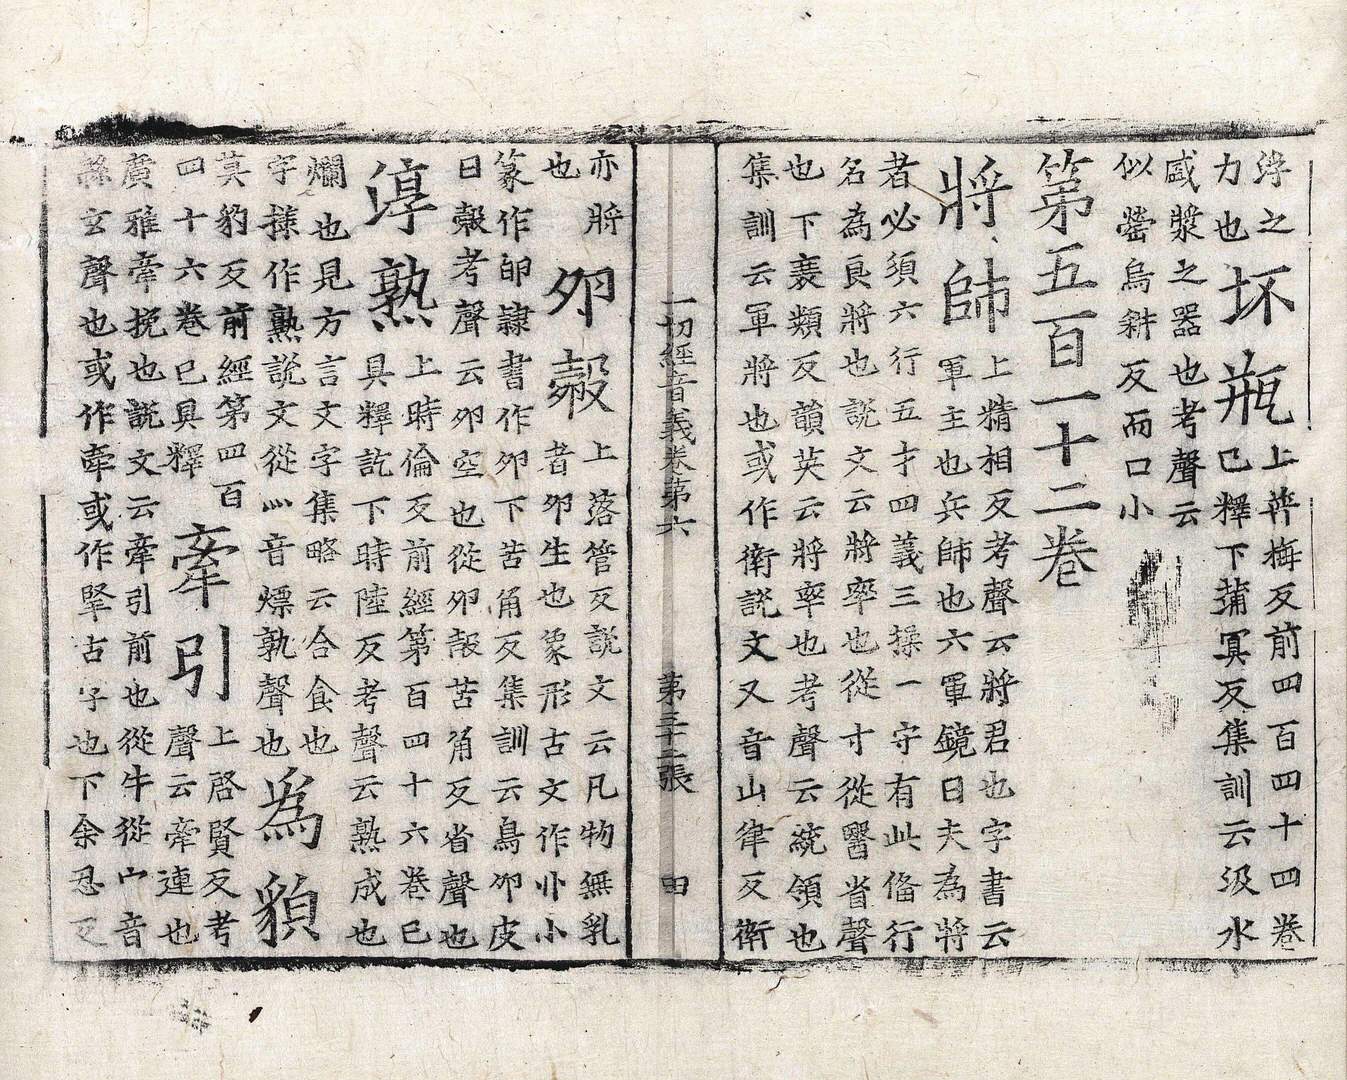 浮之力也坏瓶上普梅反前四百四十四卷已釋下蒲冥反集訓云汲水
盛漿之器也考聲云似罃烏耕反而口小
第五百一十二卷
將帥上精相反考聲云將君也字書云軍主也兵師也六軍鏡曰夫為將
者必須六行五才四義三操一守有此偹行名為良將也說文云將率也從寸從醬省聲
也下衰類反韻英云將率也考聲云統領也集訓云軍將也或作衛說文又音山律反衛
一切經音義卷第六 第三十二張 田
亦將也卵㲉上落管反說文云凡物無乳者卵生也象形古文作卝小
篆作卵隷書作卵下苦角反集訓云鳥卵皮曰㲉考聲云卵空也從卵㱿苦角反省聲也
淳熟上時倫反前經第百四十六卷已具釋訖下時陸反考聲云熟成也
爛也見方言文字集略云合食也字㨾作熟說文從灬音熛孰聲也為貌
莫豹反前經第四百四十六卷已具釋牽引上啓賢反考聲云牽連也
廣雅牽挽也說文云牽引前也從牛從冖音絲玄聲也或作牽或作掔古字也下余忍反